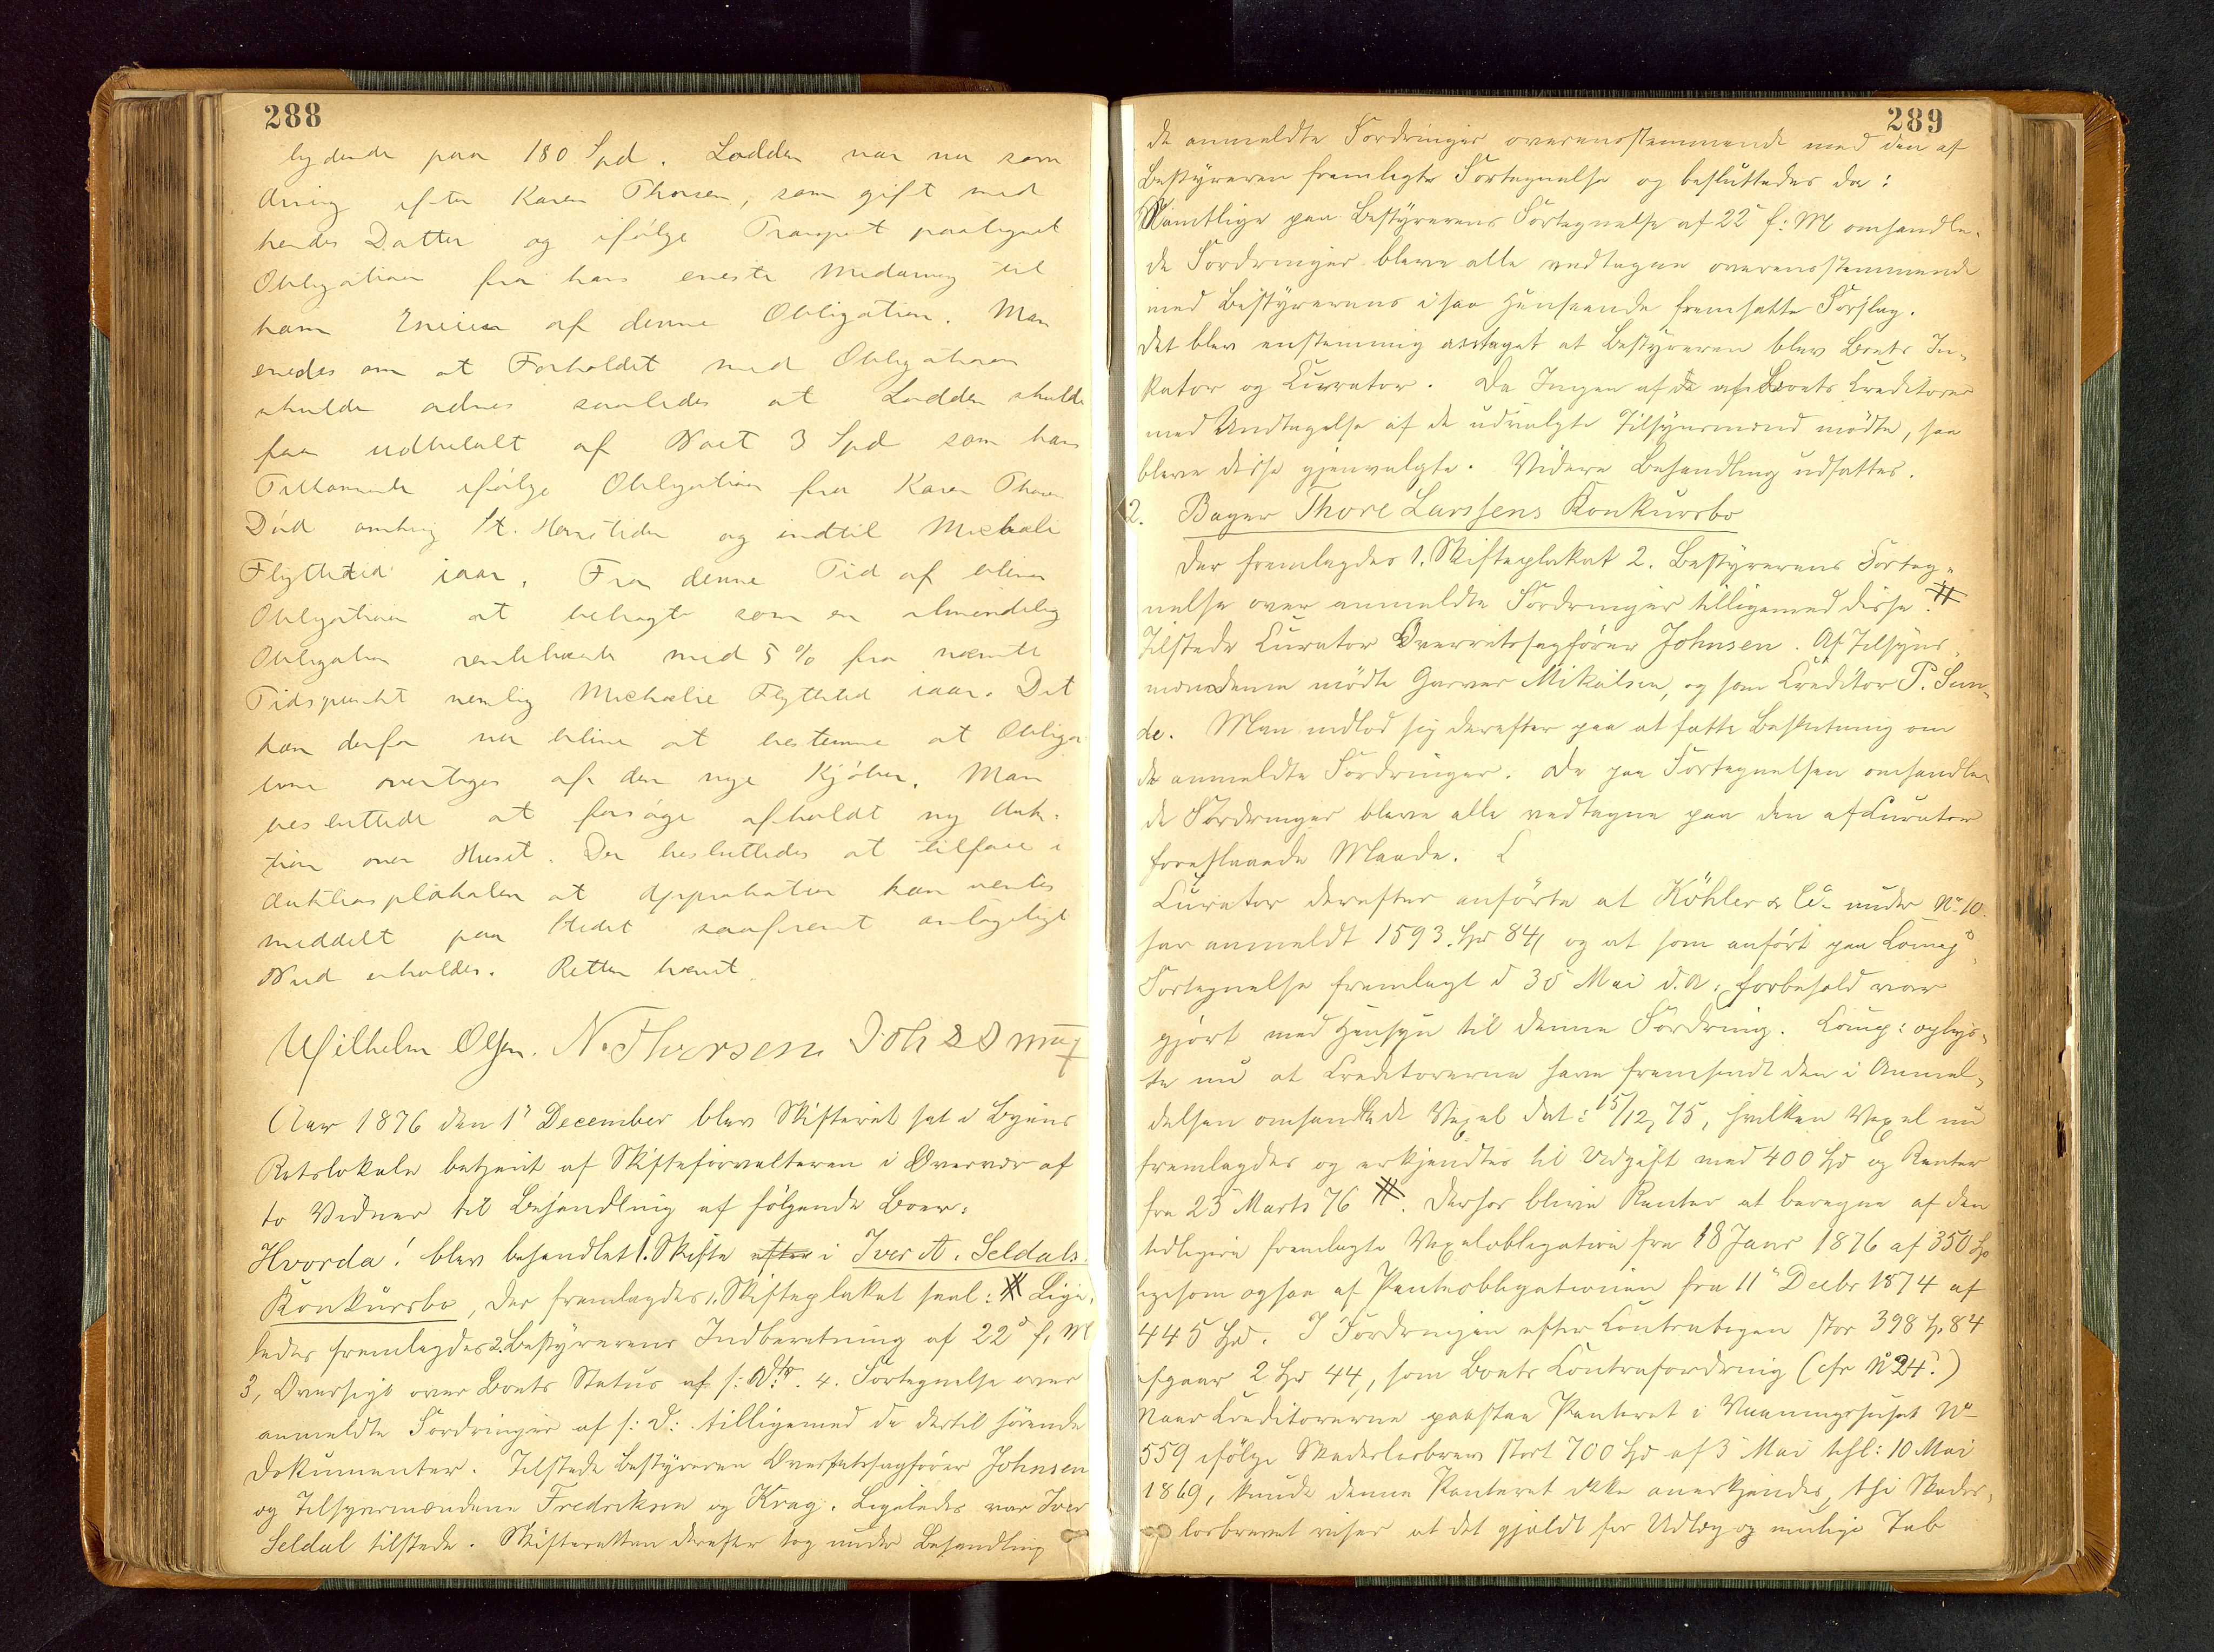 288
lydende paa 180 Spd. Lodden var nu som
Arving efter Karen Thorsen, som gift med
hendes Datter og ifölge Transport paategnet
Obligationen fra hans eneste Medarving til
ham Eneeier af denne Obligation. Man
enedes om at Forholdet med Obligationen
skulde ordnes saaledes at Lodden skulde
faa udbetalt af Boet 3 Spd som hans
Tilkommende ifölge Obligation fra Karen Thorsens
Död omkring St. Hanstider og indtil Michaeli
Flyttetid iaar. Fra denne Tid af bliver
Obligationen at betragte som en almindelig
Obligation rentebærende med 5 % fra nævnte
Tidspunkt nemlig Michaelie Flyttetid iaar. Det
kan derfor nu blive at bestemme at Obliga
tionen overtages af den nye Kjöber. Man
besluttede at forsöge afholdt ny Auk-
tion over Huset. Der besluttedes at tilföie i
Auktionsplakaten at Approbation kan ventes
meddelt paa Stedet saafremt antageligt
Bud erholdes. Retten hævet.
Wilhelm Olsen. N. Thorsen
Aar 1876 den 1' December blev Skifteret sat i Byens
Retslokale betjent af Skifteforvalteren i Overvær af
to Vidner til Behandling af fölgende Boer:
Hvorda! blev behandlet 1. Skifte efter i Iver A. Seldals
Konkursbo, Der fremlagdes 1. Skifteplakat saal: # Lige-
ledes fremlagdes 2. Bestyrerens Indberetning af 22' f. M
3, Oversigt over Boets Status af s: Dto. 4. Fortegnelse over
anmeldte Fordringer af s: D: tilligemed de dertil hörende
Dokumenter. Tilstede Bestyreren Overretssagförer Johnsen
og Tilsynsmændene Fredriksen og Krag. Ligeledes var Iver
Seldal tilstede. Skifteretten derefter tog under Behandling
289
de anmeldte Fordringer overensstemmende med den af
Bestyreren fremlagte Fortegnelse og besluttedes da:
Samtlige paa Bestyrerens Fortegnelse af 22' f: M omhandle-
de Fordringer bleve alle vedtagne overensstemmende
med Bestyrerens i saa Henseende fremsatte Forslag.
Det blev enstemmig antaget at Bestyreren blev Boets In-
kator og Curator. Da Ingen af de af Boets Creditorer
med Undtagelse af de udvalgte Tilsynsmænd mödte, saa
bleve disse gjenvalgte. Videre Behandling udsattes.
2. Bager Thore Larssens Konkursbo
Der fremlagdes 1. Skifteplakat 2. Bestyrerens Forteg-
nelse over anmeldte Fordringer tilligemed disse. #
Tilstede Curator Overretssagförer Johnsen. Af Tilsyns-
mændene mödte Garver Mikalsen, og som Creditor P. Sun-
de. Man indlod sig derefter paa at fatte Beslutning om
de anmeldte Fordringer. De paa Fortegnelsen omhandle-
de Fordringer bleve alle vedtagne paa den af Curator
foreslaaede Maade.
Curator derefter anförte at Köhler & Co. under No 10.
har anmeldt 1593. Spd 84, og at som anfört paa Comp's
Fortegnelse fremlagt d 30 Mai d. A. forbehold var
gjort med Hensyn til denne Fordring. Comp: oplys-
te nu at Creditorerne have fremsendt den i Anmel-
delsen omhandlede Vexel dat: 15/12, 75, hvilken Vexel nu
fremlagdes og erkjendtes til Udgift med 400 Spd og Renter
fra 25 Marts 76 #. Derhos blive Renter at beregne af den
tidligere fremlagte Vexelobligation fra 18 Janr 1876 af 350 Sp
ligesom ogsaa af Panteobligationen fra 11' Decbr 1874 af
445 Spd. I Fordringen efter Contrabogen stor 398 Sp 84
afgaar 2 Spd 44, som Boets Contrafordring (cfr No 24.)
Naar Creditorerne paastaa Panteret i Vaaningshuset No
559 ifölge Skadeslösbrev stort 700 Spd af 3' Mai thgl: 10 Mai
1869, kunde denne Panteret ikke anerkjendes, thi Skades-
lösbrevet viser at det gjaldt for Udlæg og mulige Tab